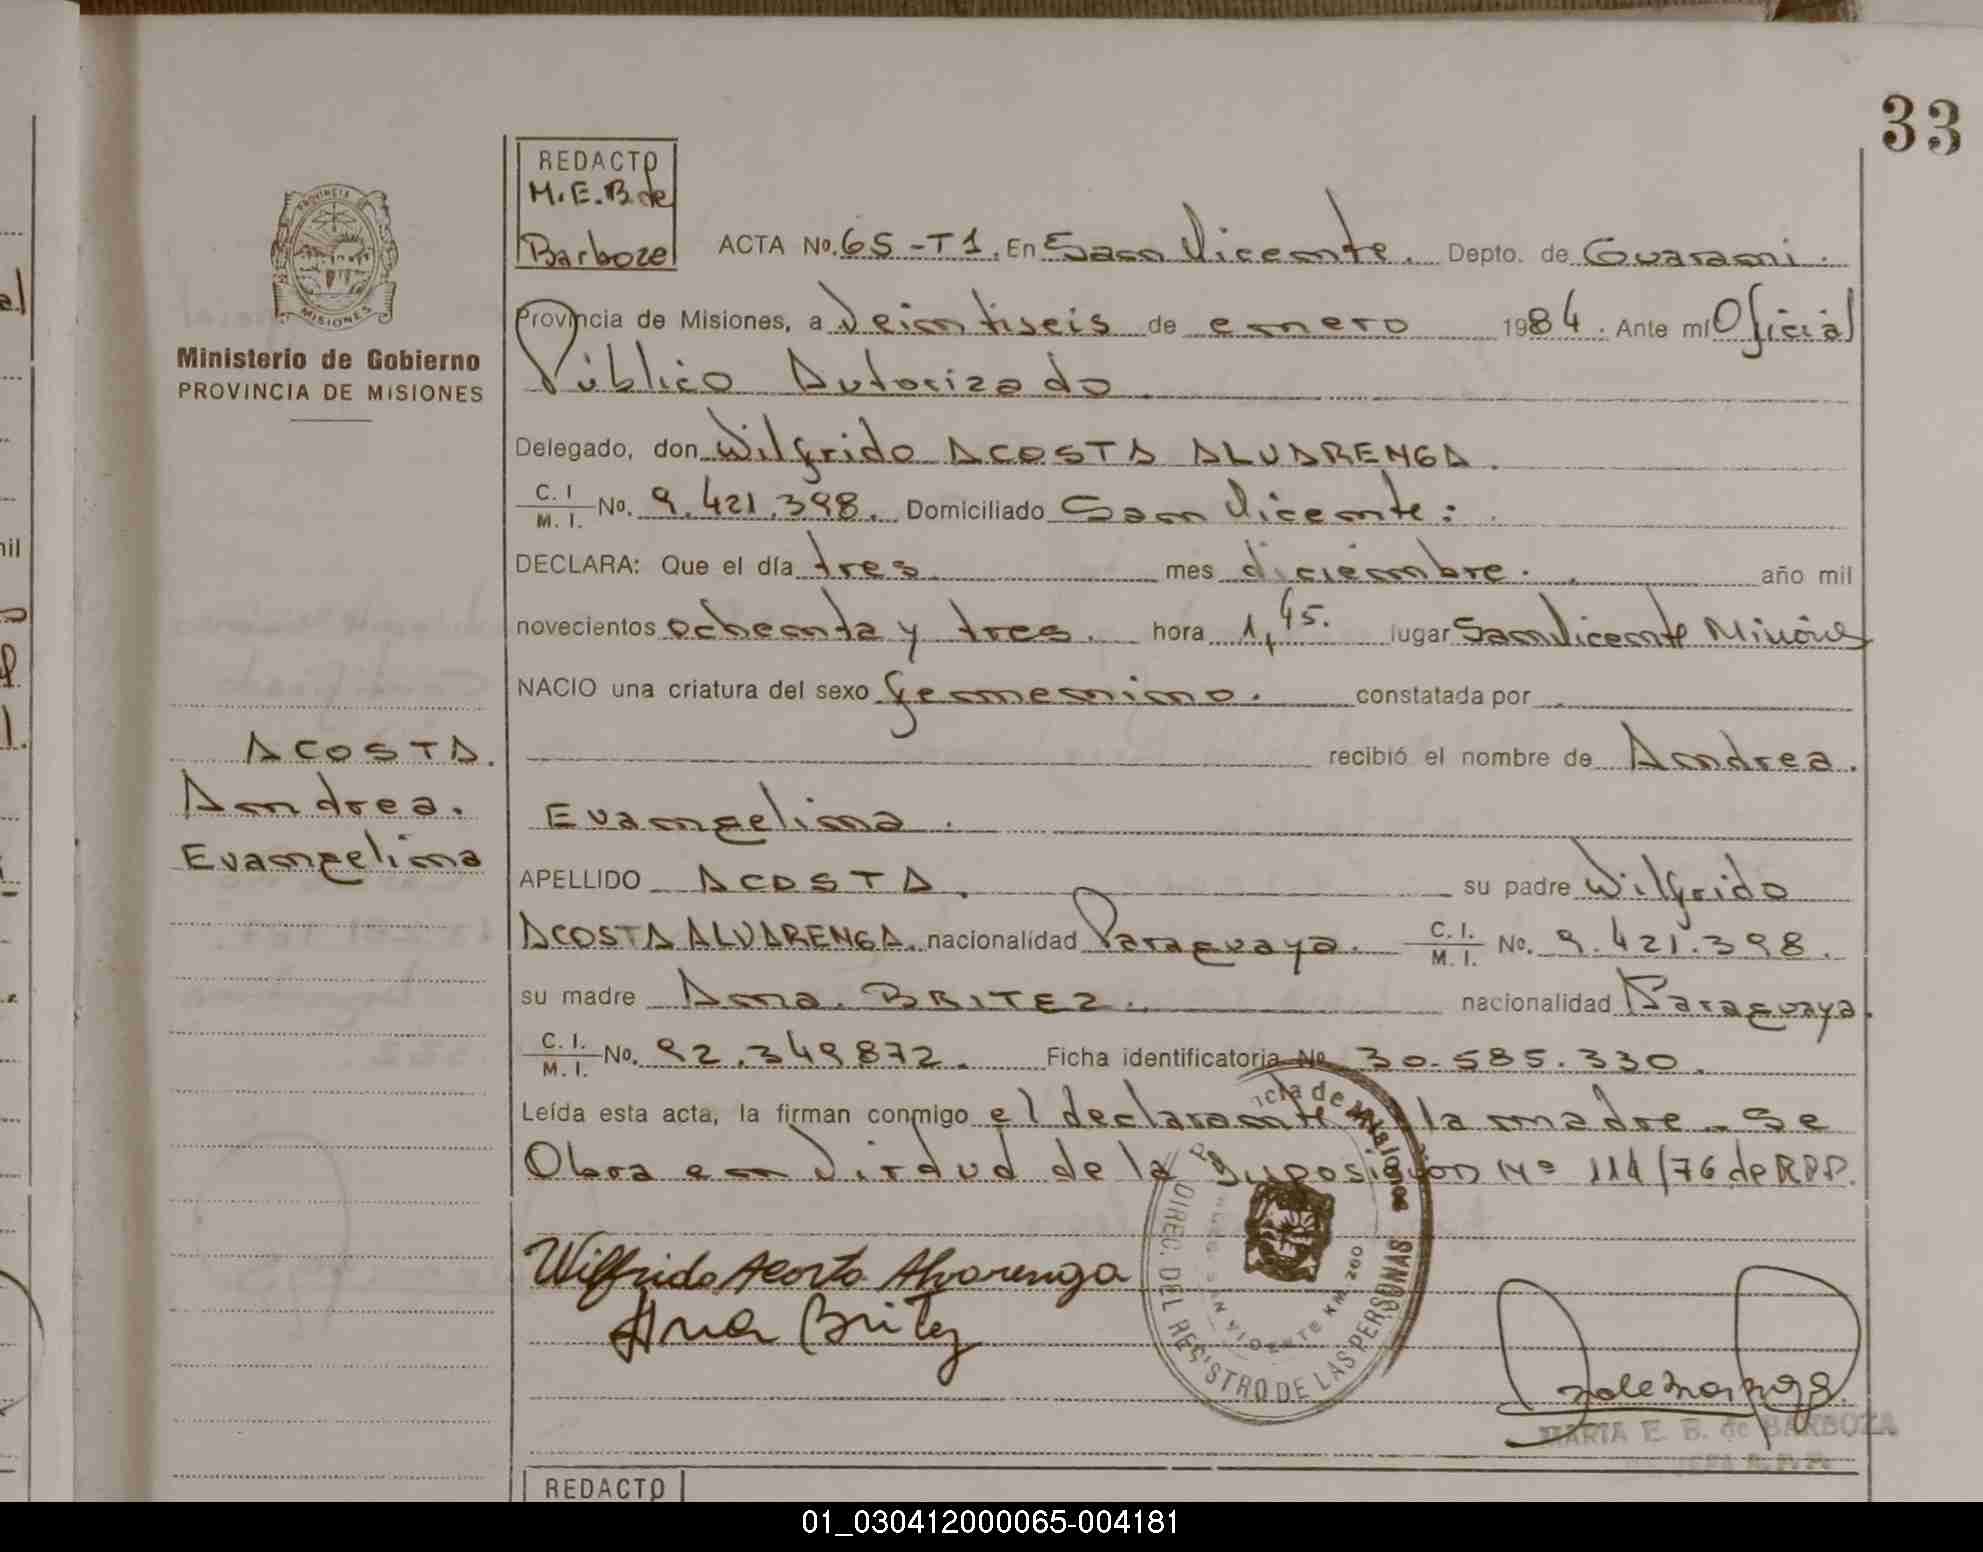 33
REDACTO
M.E.B. de
Barboza
PROVINCIA DE
MISIONES
Ministerio de Gobierno
PROVINCIA DE MISIONES
ACTA No. 65-T1. En San Vicente. Depto. de Guarani.
Provincia de Misiones, a Veintiseis de enero 1984. Ante mí Oficial
Público Autorizado
Delegado, don Wilfrido ACOSTA ALVARENGA.
C. I. / M. I. No. 9.421.398. Domiciliado San Vicente:
DECLARA: Que el día tres mes diciembre. año mil
novecientos ochenta y tres. hora 1,45. lugar San Vicente Misiones
NACIO una criatura del sexo femenino. constatada por
recibió el nombre de Andrea.
Evangelina.
APELLIDO ACOSTA. su padre Wilfrido
ACOSTA ALVARENGA. nacionalidad Paraguaya. C. I. / M. I. No. 9.421.398.
su madre Ana. BRITEZ. nacionalidad Paraguaya.
C. I. / M. I. No. 92.349872. Ficha identificatoria No 30.585.330.
Leída esta acta, la firman conmigo el declarante la madre. Se
Obra en Virdud de la Disposición Nº 114/76 de RPP.
ACOSTA.
Andrea.
Evangelina
Wilfrido Acosta Alvarenga
Ana Britez
DIREC. DEL REGISTRO DE LAS PERSONAS
SAN VICENTE KM. 260
MARIA E. B. de BARBOZA
REDACTO
01_030412000065-004181